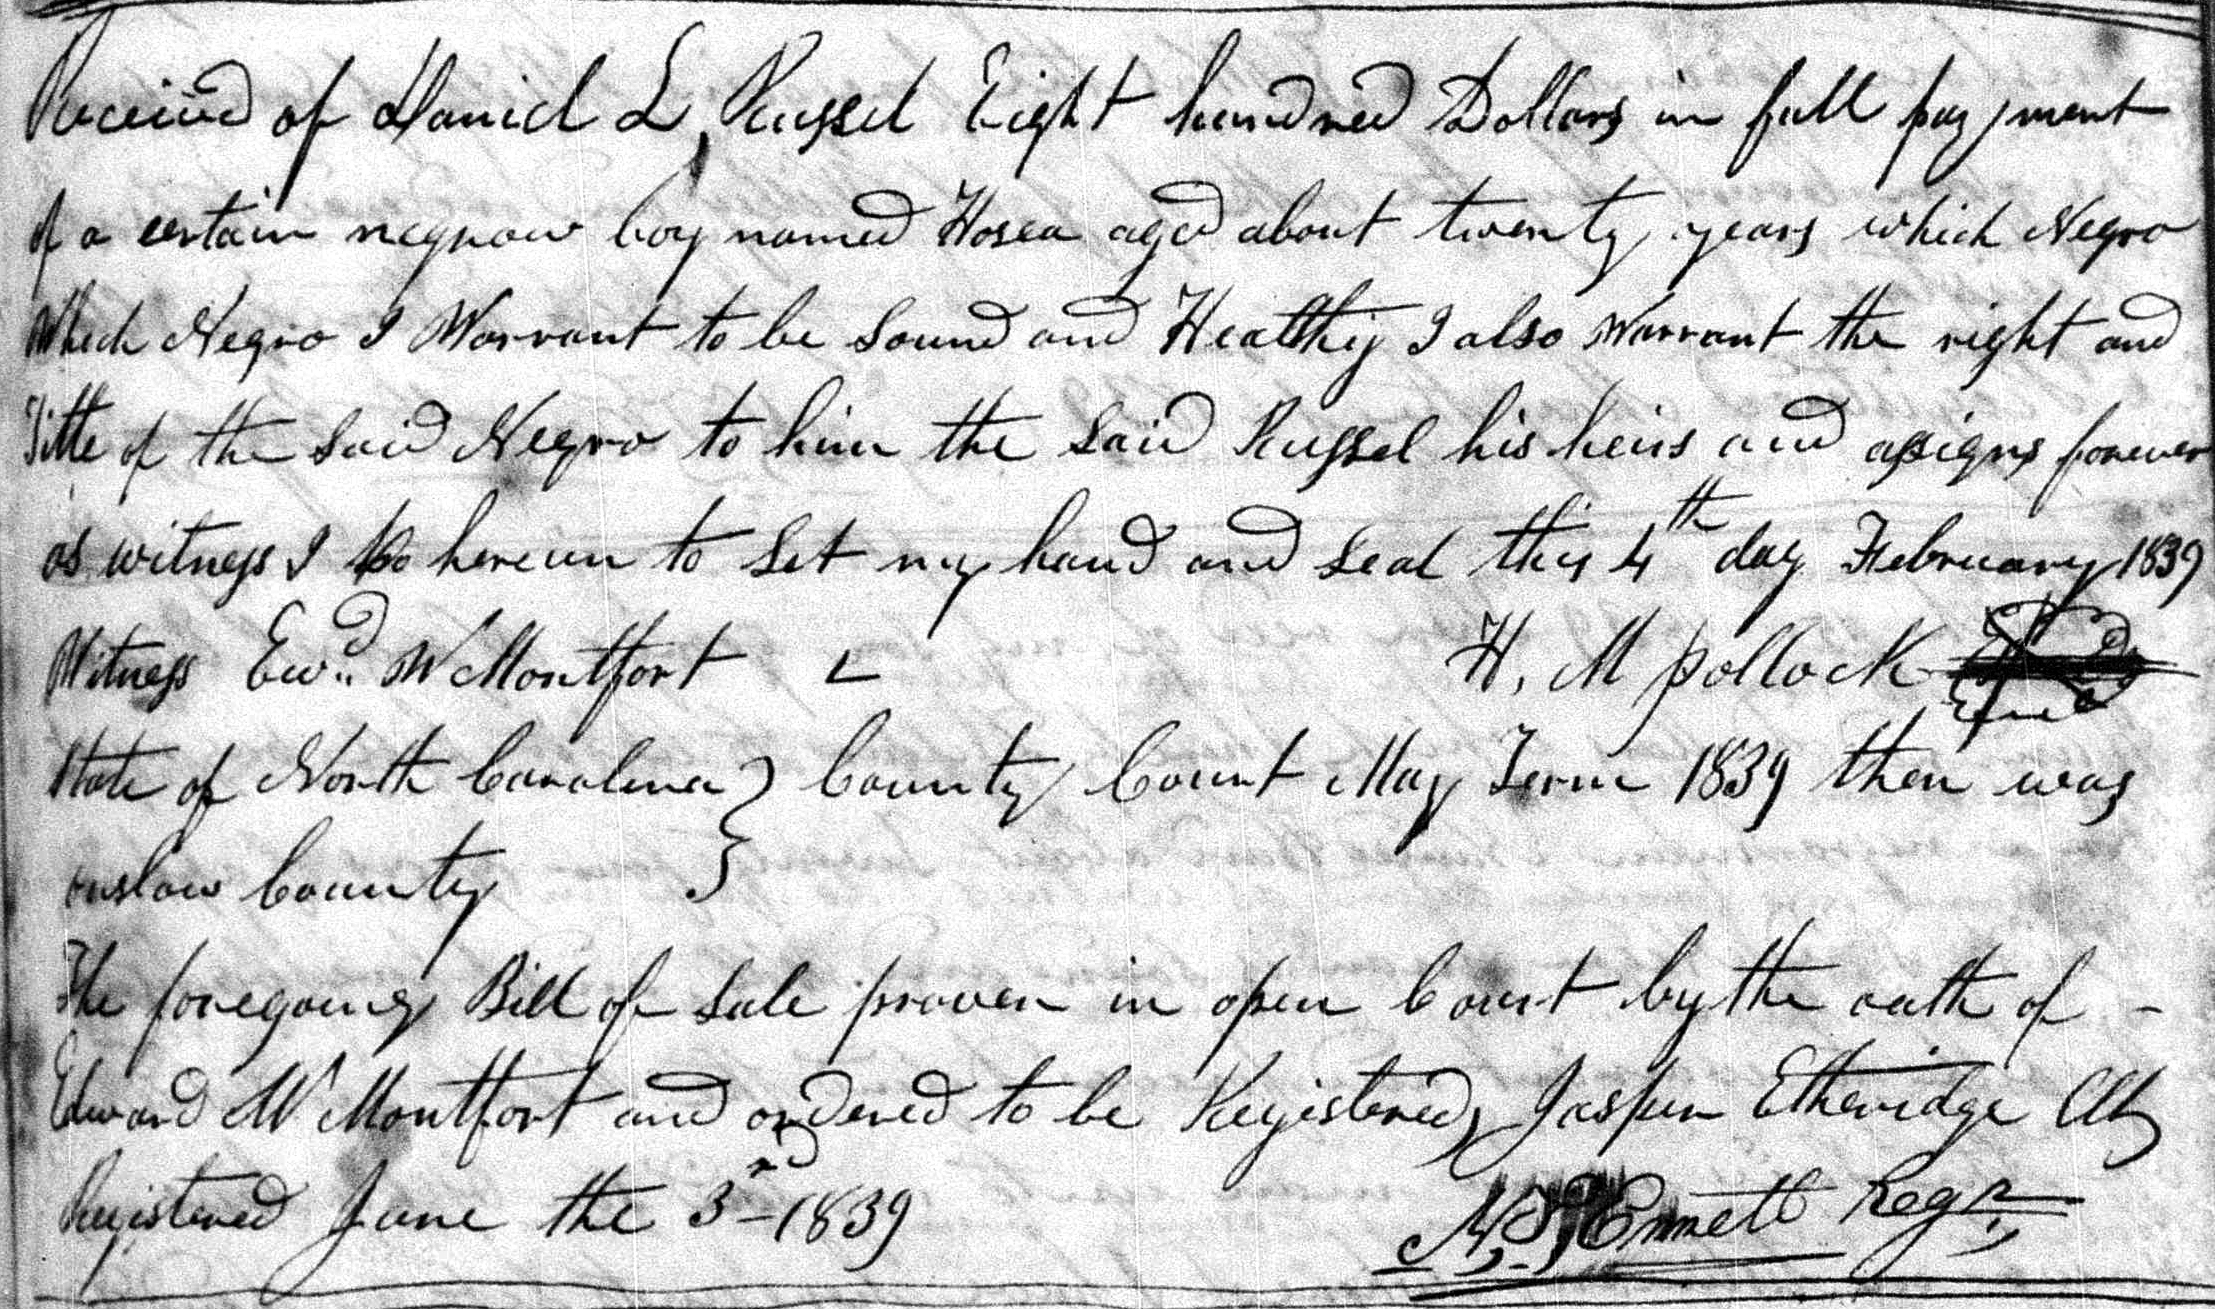 Received of Daniel L Russel Eight hundred Dollars in full payment
of a certain negrow boy named Hosea aged about twenty years which Negro
Which Negro I Warrant to be Sound and Healthy I also Warrant the right and
Title of the Said Negro to him the Said Russel his heirs and assigns forever
as witness I do hereun to Set my hand and Seal this 4th day February 1839
Witness Ewd. W Montfort H, M pollock
State of North Carolina } County Court May Term 1839 then was
onslow County }
The foregoing Bill of Sale proven in open Court by the oath of -
Edward W Montfort and ordered to be Registered Jasper Etheridge Clk
Registered June the 3rd 1839 Ennett Regr,